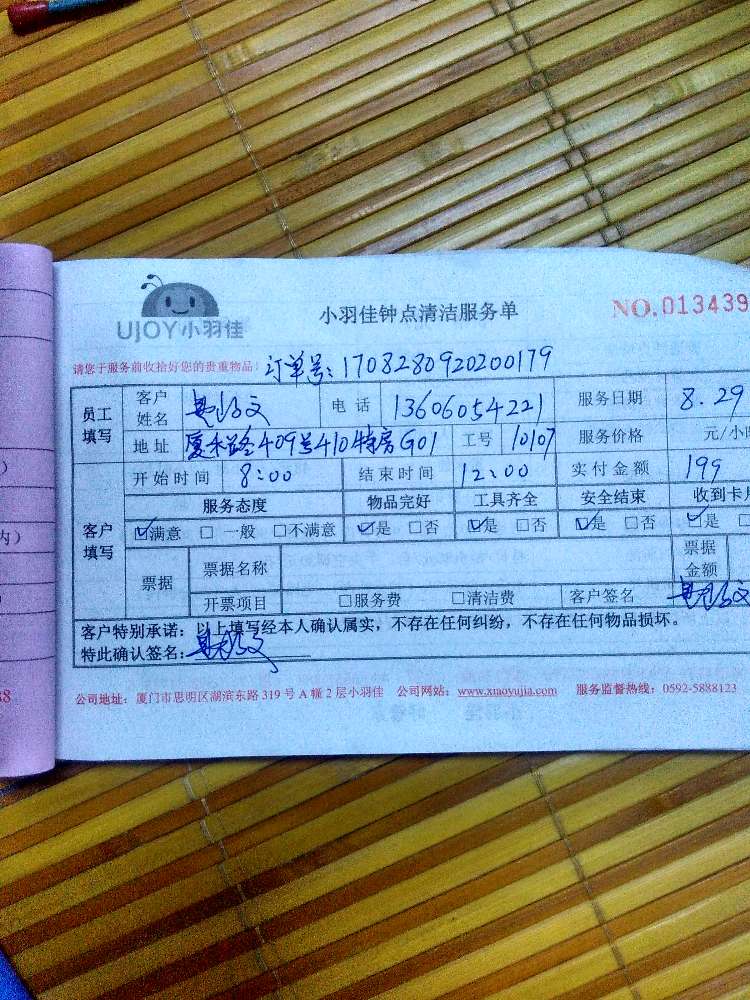 UJOY小羽佳 小羽佳钟点清洁服务单 NO.013439
请您于服务前收拾好您的贵重物品! 订单号:1708280920200179
员工填写 客户姓名 电话 13606054221 服务日期 8.29
地址 厦禾路409号410特房G01 工号 10107 服务价格 元/小
客户填写 开始时间 8:00 结束时间 12:00 实付金额 199
服务态度 物品完好 工具齐全 安全结束 收到卡
☑满意 □一般 □不满意 ☑是 □否 ☑是 □否 ☑是 □否 ☑是
票据 票据名称 票据金额
开票项目 □服务费 □清洁费 客户签名
客户特别承诺:以上填写经本人确认属实,不存在任何纠纷,不存在任何物品损坏。
特此确认签名:
公司地址:厦门市思明区湖滨东路319号A幢2层小羽佳 公司网站:www.xiaoyujia.com 服务监督热线:0592-5888123